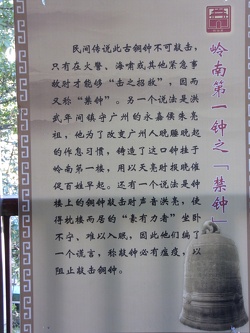 岭南第一钟之「禁钟」
民间传说此古铜钟不可敲击，
只有在火警、海啸或其他紧急事
故时才能够“击之招救”，因而
又称“禁钟”。另一个说法是洪
武年间镇守广州的永嘉侯朱亮
祖，他为了改变广州人晚睡晚起
的作息习惯，铸造了这口钟挂于
岭南第一楼，用以天亮时报晓催
促百姓早起。还有一个说法是钟
楼上的铜钟敲击时声音洪亮，使
得枕楼而居的“豪有力者”坐卧
不宁，难以入眠，因此他们编了
一个谎言，称敲钟必有瘟疫，以
阻止敲击铜钟。